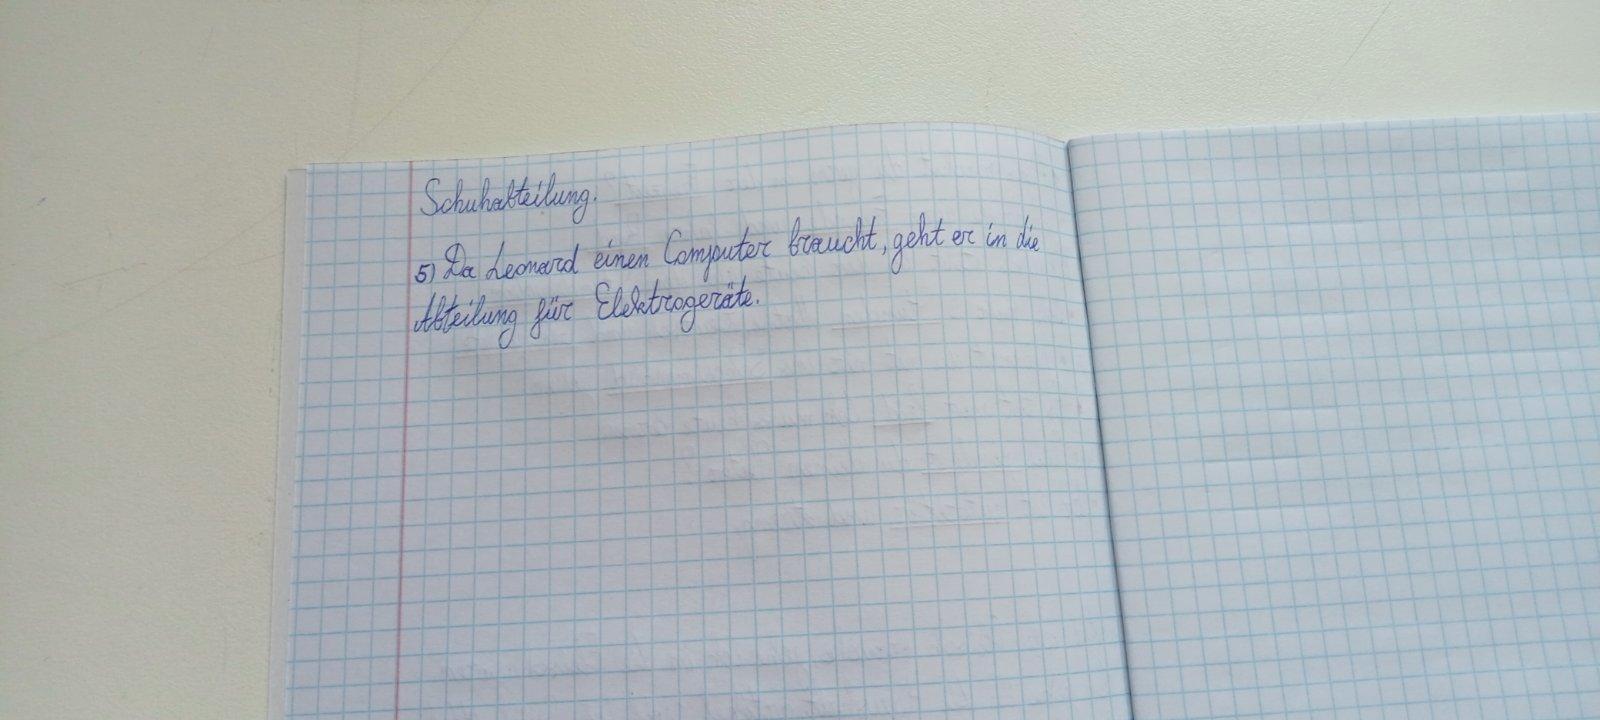 Schuhabteilung.
5) Da Leonard einen Computer braucht, geht er in die
Abteilung für Elektrogeräte.